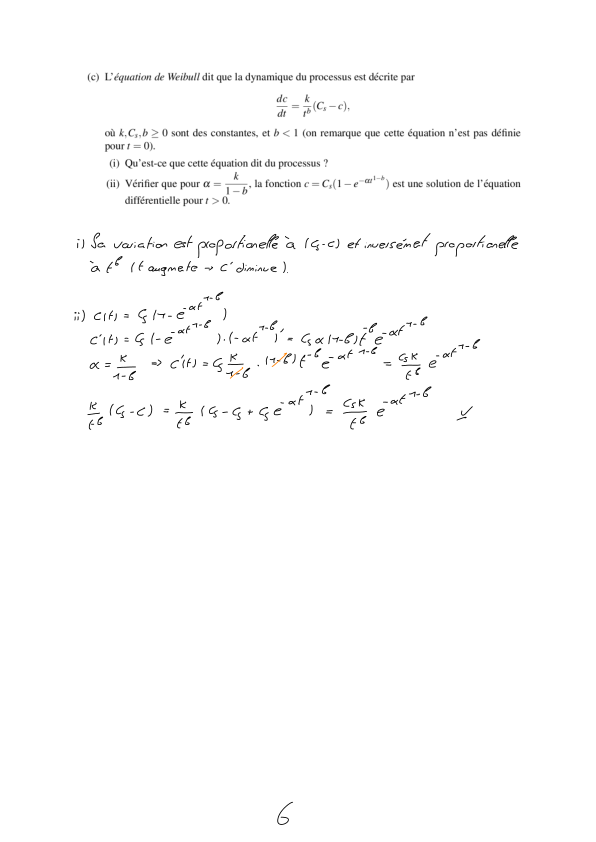 (c) L'équation de Weibull dit que la dynamique du processus est décrite par
dc/dt = k/t^b (C_s − c),
où k,C_s,b ≥ 0 sont des constantes, et b < 1 (on remarque que cette équation n'est pas définie
pour t = 0).
(i) Qu'est-ce que cette équation dit du processus ?
(ii) Vérifier que pour α = k/(1−b), la fonction c = C_s(1 − e^{−αt^{1−b}}) est une solution de l'équation
différentielle pour t > 0.
i) Sa variation est proportionelle à (Cs-C) et inversémet proportionelle
à t^b (t augmete → C' diminue).
ii) C(t) = Cs (1- e^{-αt^{1-b}})
C'(t) = Cs (-e^{-αt^{1-b}}) · (-αt^{1-b})' = Cs α (1-b) t^{-b} e^{-αt^{1-b}}
α = k/(1-b) => C'(t) = Cs k/(1-b) · (1-b) t^{-b} e^{-αt^{1-b}} = Cs k/t^b e^{-αt^{1-b}}
k/t^b (Cs - C) = k/t^b (Cs - Cs + Cs e^{-αt^{1-b}}) = Cs k/t^b e^{-αt^{1-b}} ✓
6